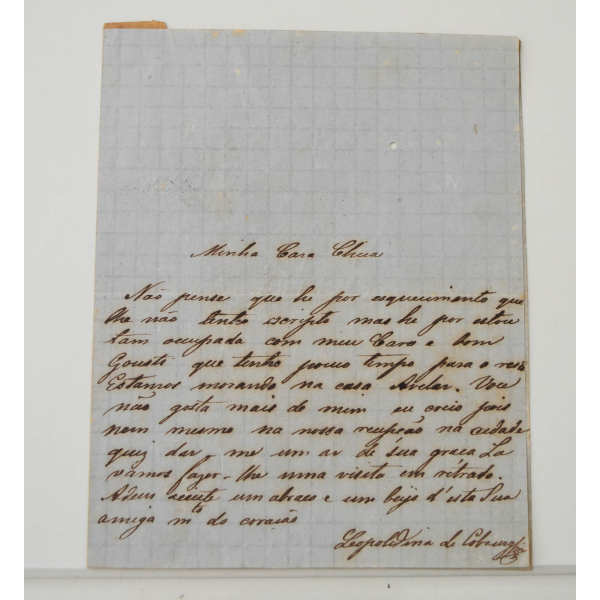 Minha Cara Chica
Não pense que he por esquecimento que
lhe não tenho escripto mas he por estou
tam occupada com meu Caro e bom
Gousti que tenho pouco tempo para o resto
Estamos morando na casa Avelar. Vou
não gosta mais de mim eu creio pois
nem mesmo na nossa recepção na cidade
quiz dar-me um ar de sua graça La
vamos fazer-lhe uma visita em retrado.
Adeus aceite um abraco e um beijo d'esta Sua
amiga mto do coração
Leopoldina de Cobourg